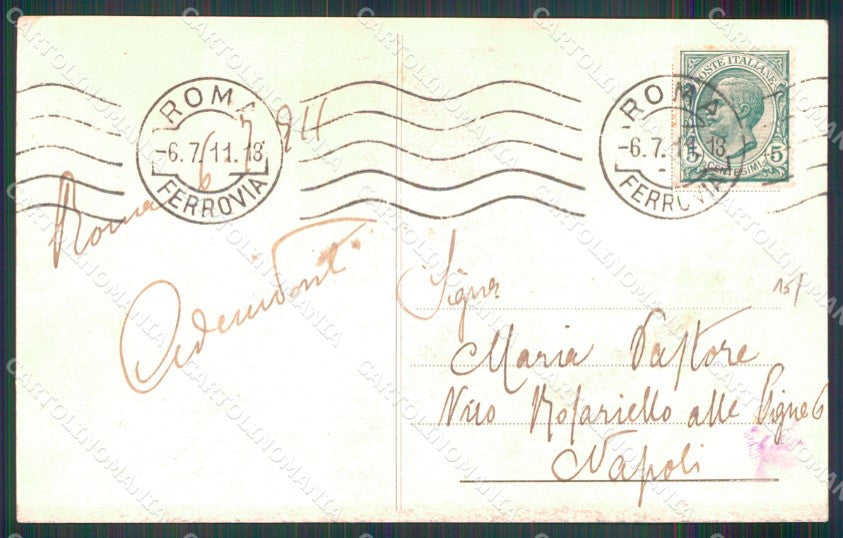 ROMA
-6.7.11.18
FERROVIA
ROMA
-6.7.11.18
FERROVIA
POSTE ITALIANE
5 CENTESIMI 5
Roma 6 7 911
Signa
Maria Pastore
Vico Rosariello alle Pigne 6
Napoli
15/
CARTOLINOMANIA